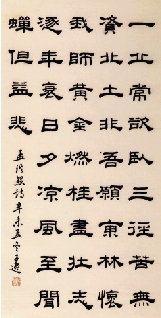 一丘常欲臥三徑苦無
資北土非吾願東林懷
我師黃金燃桂盡壯志
逐年衰日夕涼風至聞
蟬但益悲
孟浩然詩辛未孟冬